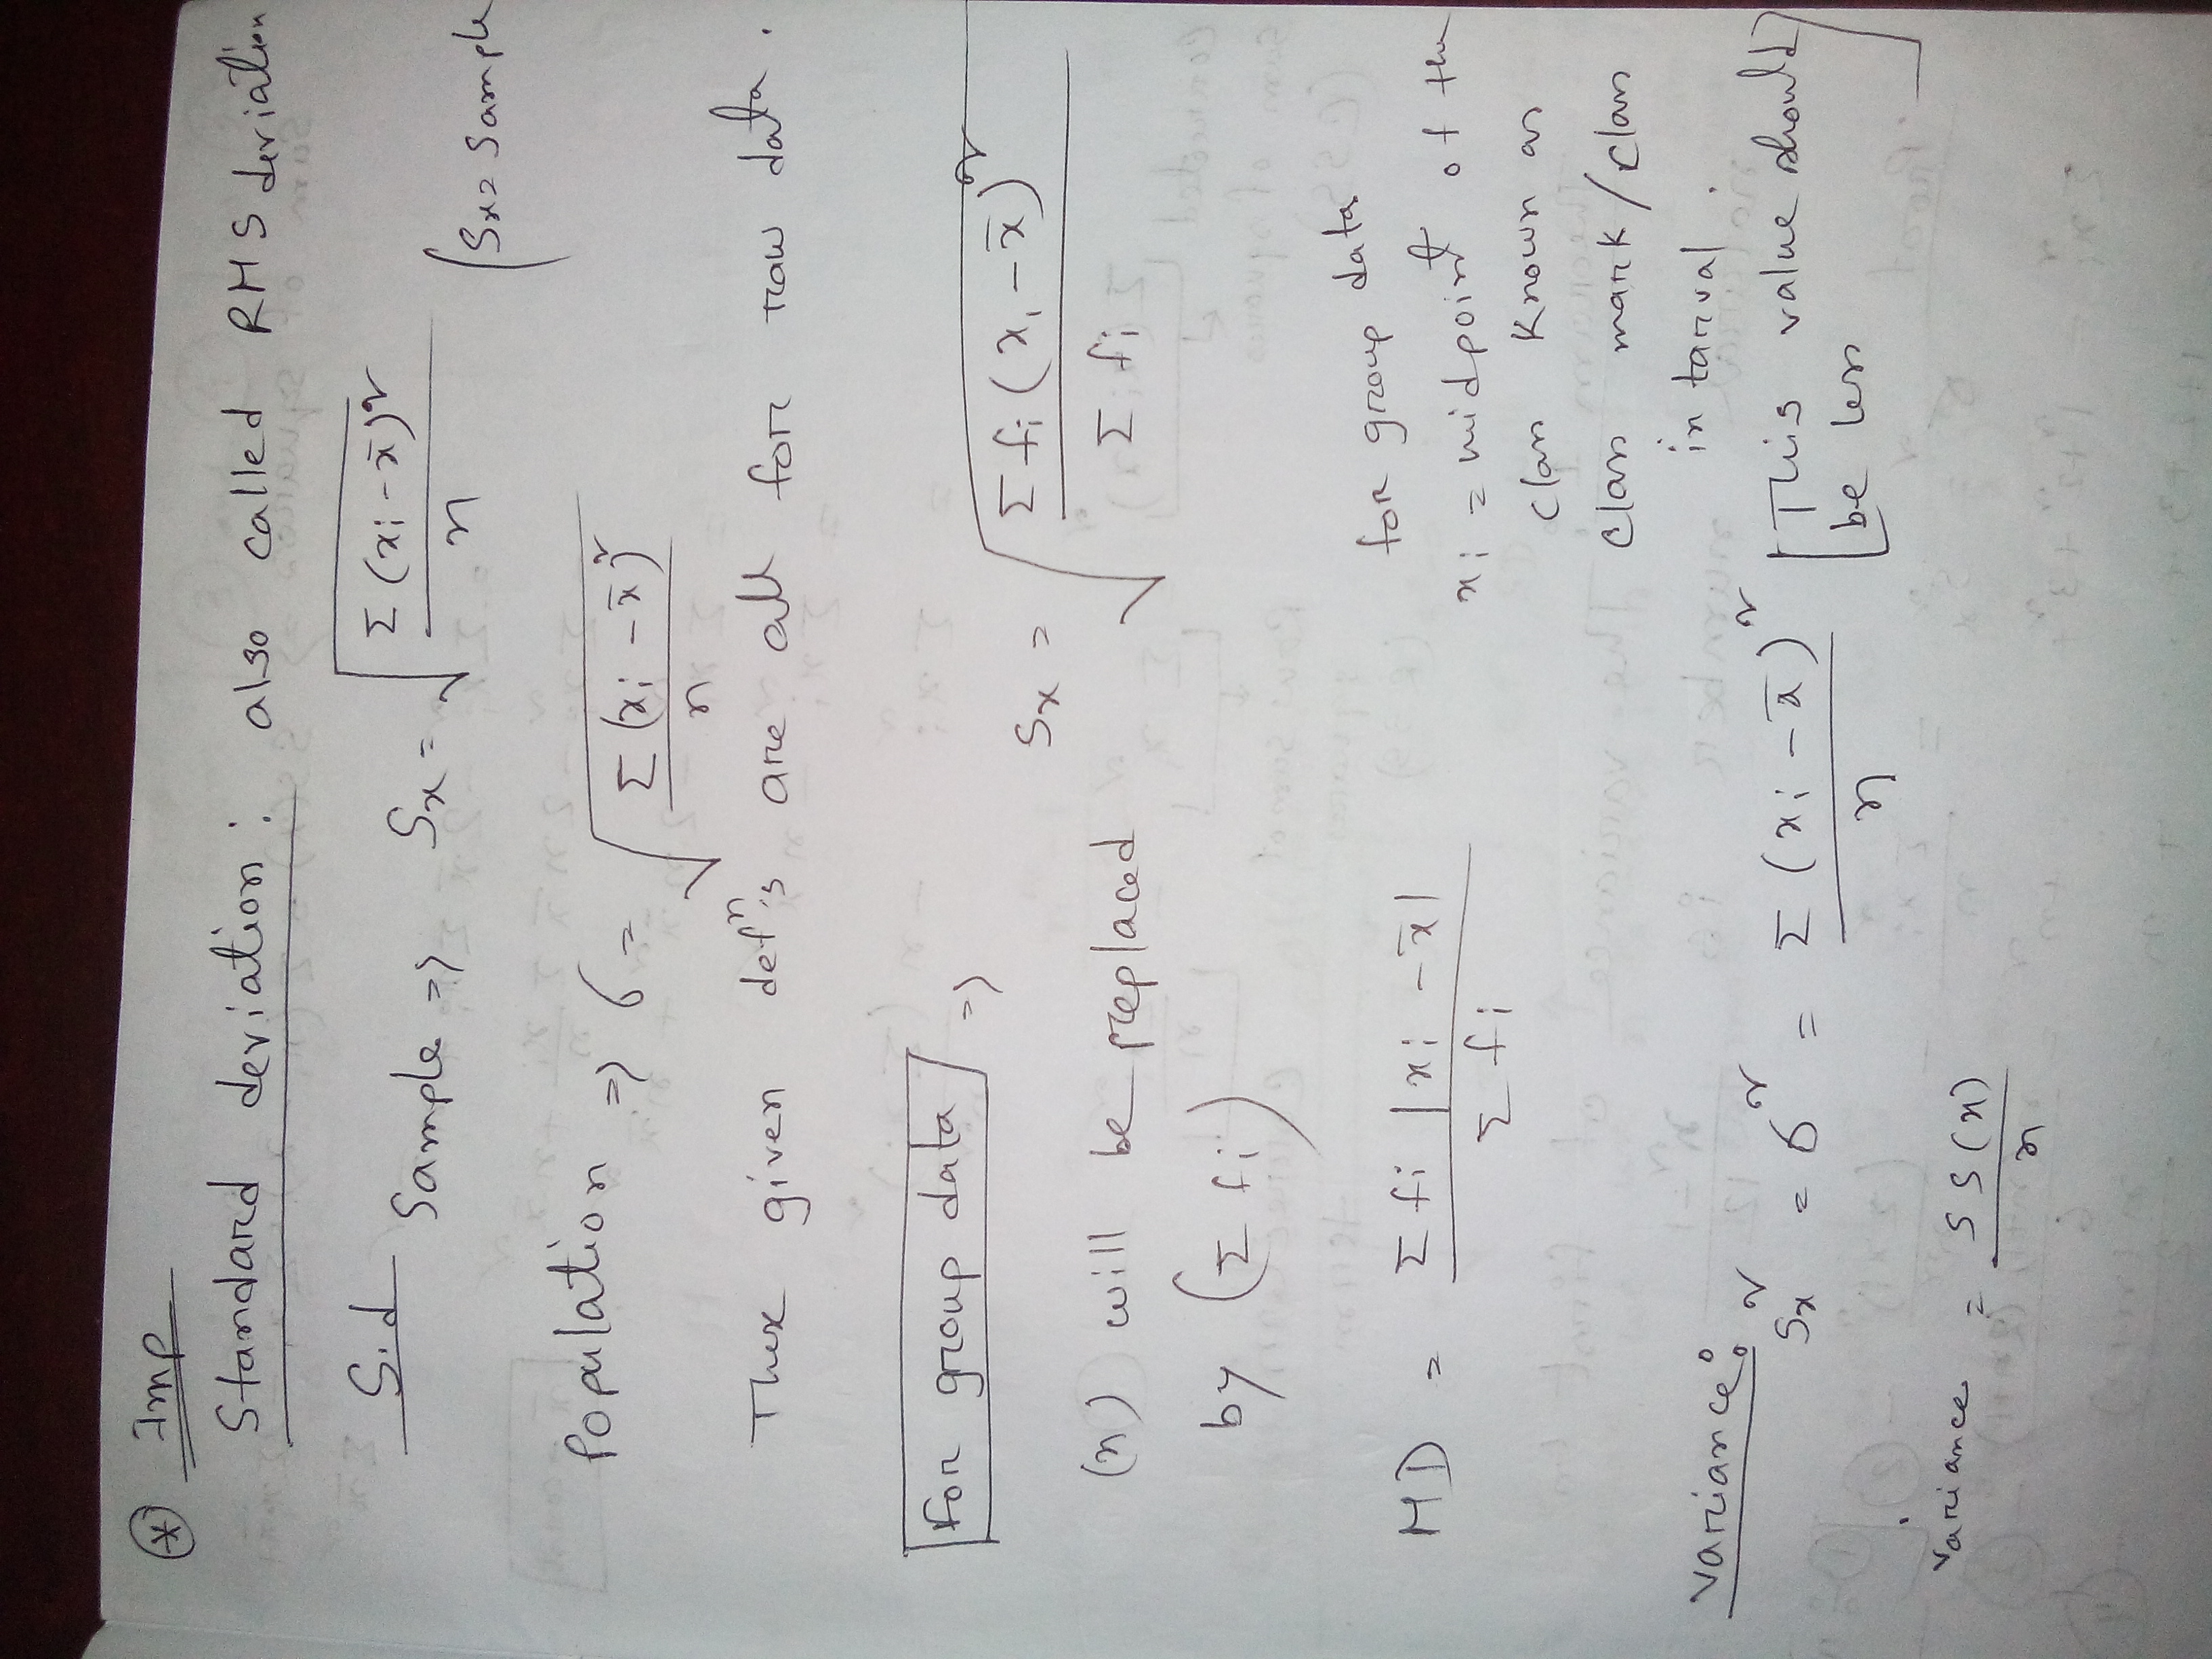 ⊛ Imp
Standard deviation: also called RMS deviation
S.d Sample ⇒ Sx = √(Σ(xi - x̄)² / n) (Sx = Sample
Population ⇒ σ = √(Σ(xi - x̄)² / n)
These given defⁿ's are all for raw data.
For group data ⇒ Sx = √(Σfi(xi - x̄)² / Σfi)
(n) will be replaced
by (Σfi)
for group data
MD = Σfi |xi - x̄| / Σfi
xi = midpoint of the
class known as
class mark/class
interval.
Variance: Sx² = σ² = Σ(xi - x̄)² / n
[This value should
be less]
Variance = SS(x) / n